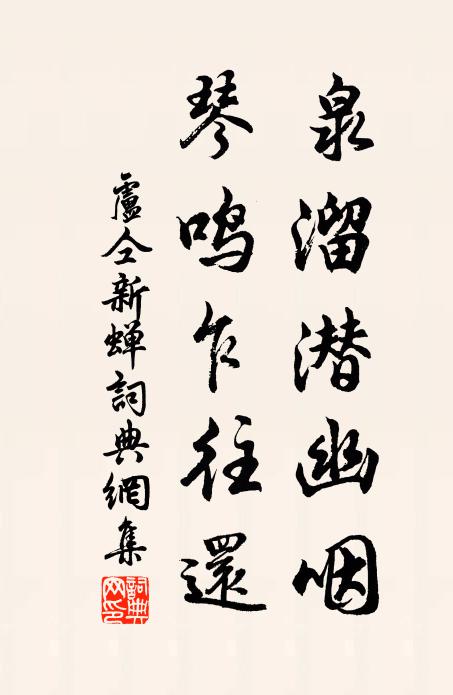 泉溜潜幽咽
琴鸣乍往還
盧仝新蝉詞典網集
詞典網印